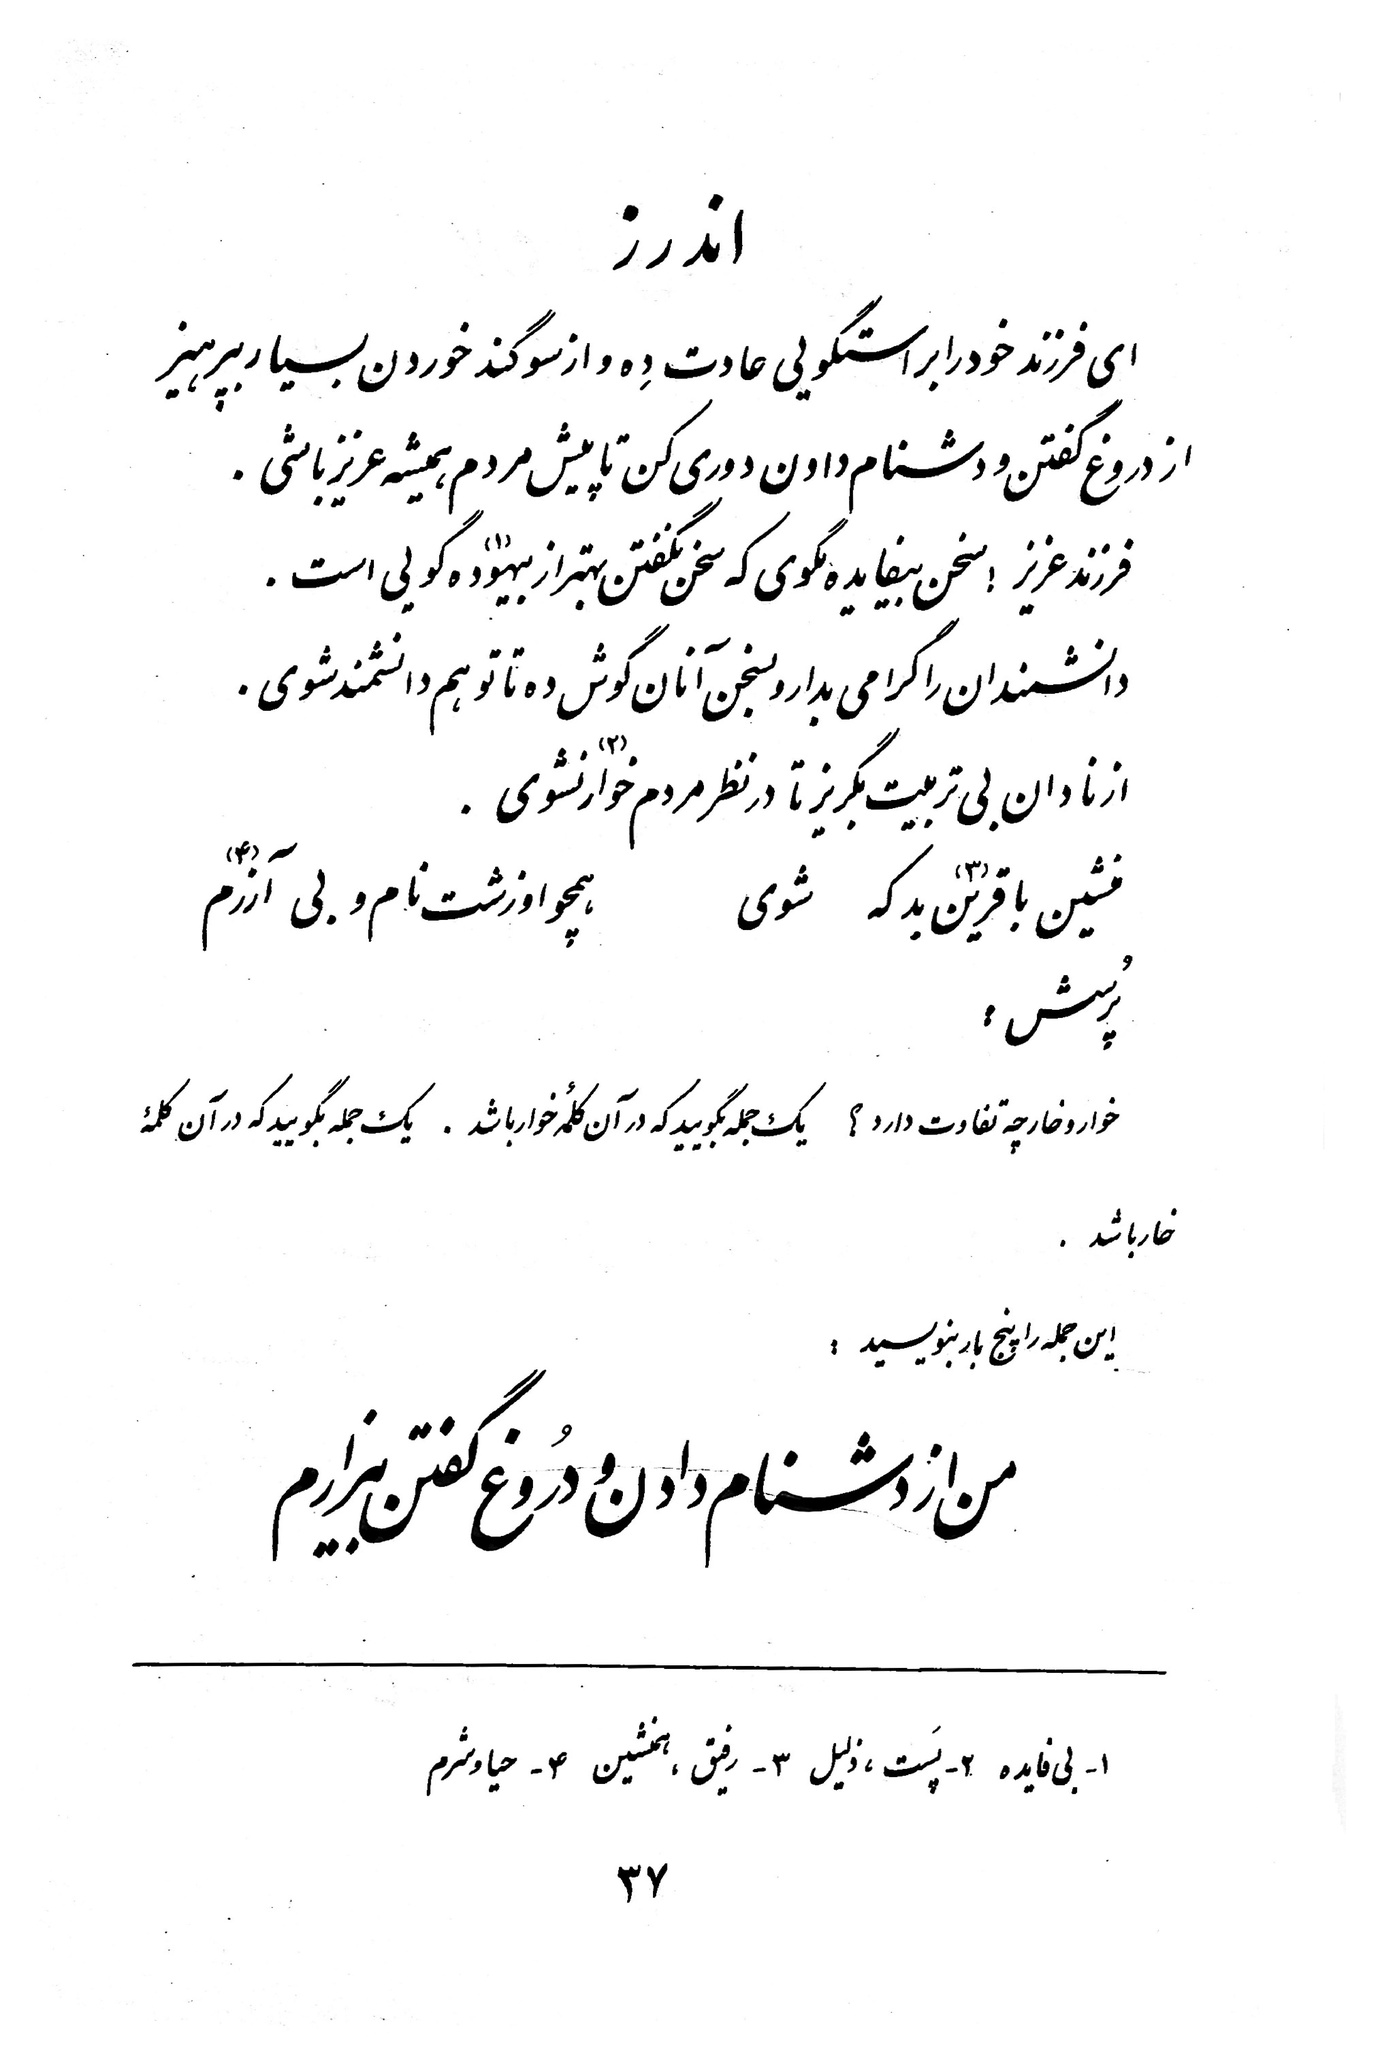 اندرز
ای فرزند خود را براستگویی عادت دِه و از سوگند خوردن بسیار بپرهیز
از دروغ گفتن و دشنام دادن دوری کن تا پیش مردم همیشه عزیز باشی .
فرزند عزیز ! سخن بیفایده مگوی که سخن نگفتن بهتر از بیهوده(۱) گویی است .
دانشمندان را گرامی بدار و بسخن آنان گوش ده تا تو هم دانشمند شوی .
از نادان بی تربیت بگریز تا در نظر مردم خوار(۲) نشوی .
منشین با قرین(۳) بد که شوی همچو او زشت نام و بی آزرم(۴)
پُرسش :
خوار و خار چه تفاوت دارد ؟ یک جمله بگویید که در آن کلمهٔ خوار باشد . یک جمله بگویید که در آن کلمهٔ
خار باشد .
این جمله را پنج بار بنویسید :
من از دشنام دادن و دُروغ گفتن بیزارم
۱- بی فایده ۲- پَست ، ذلیل ۳- رفیق ، همنشین ۴- حیا و شرم
۳۷